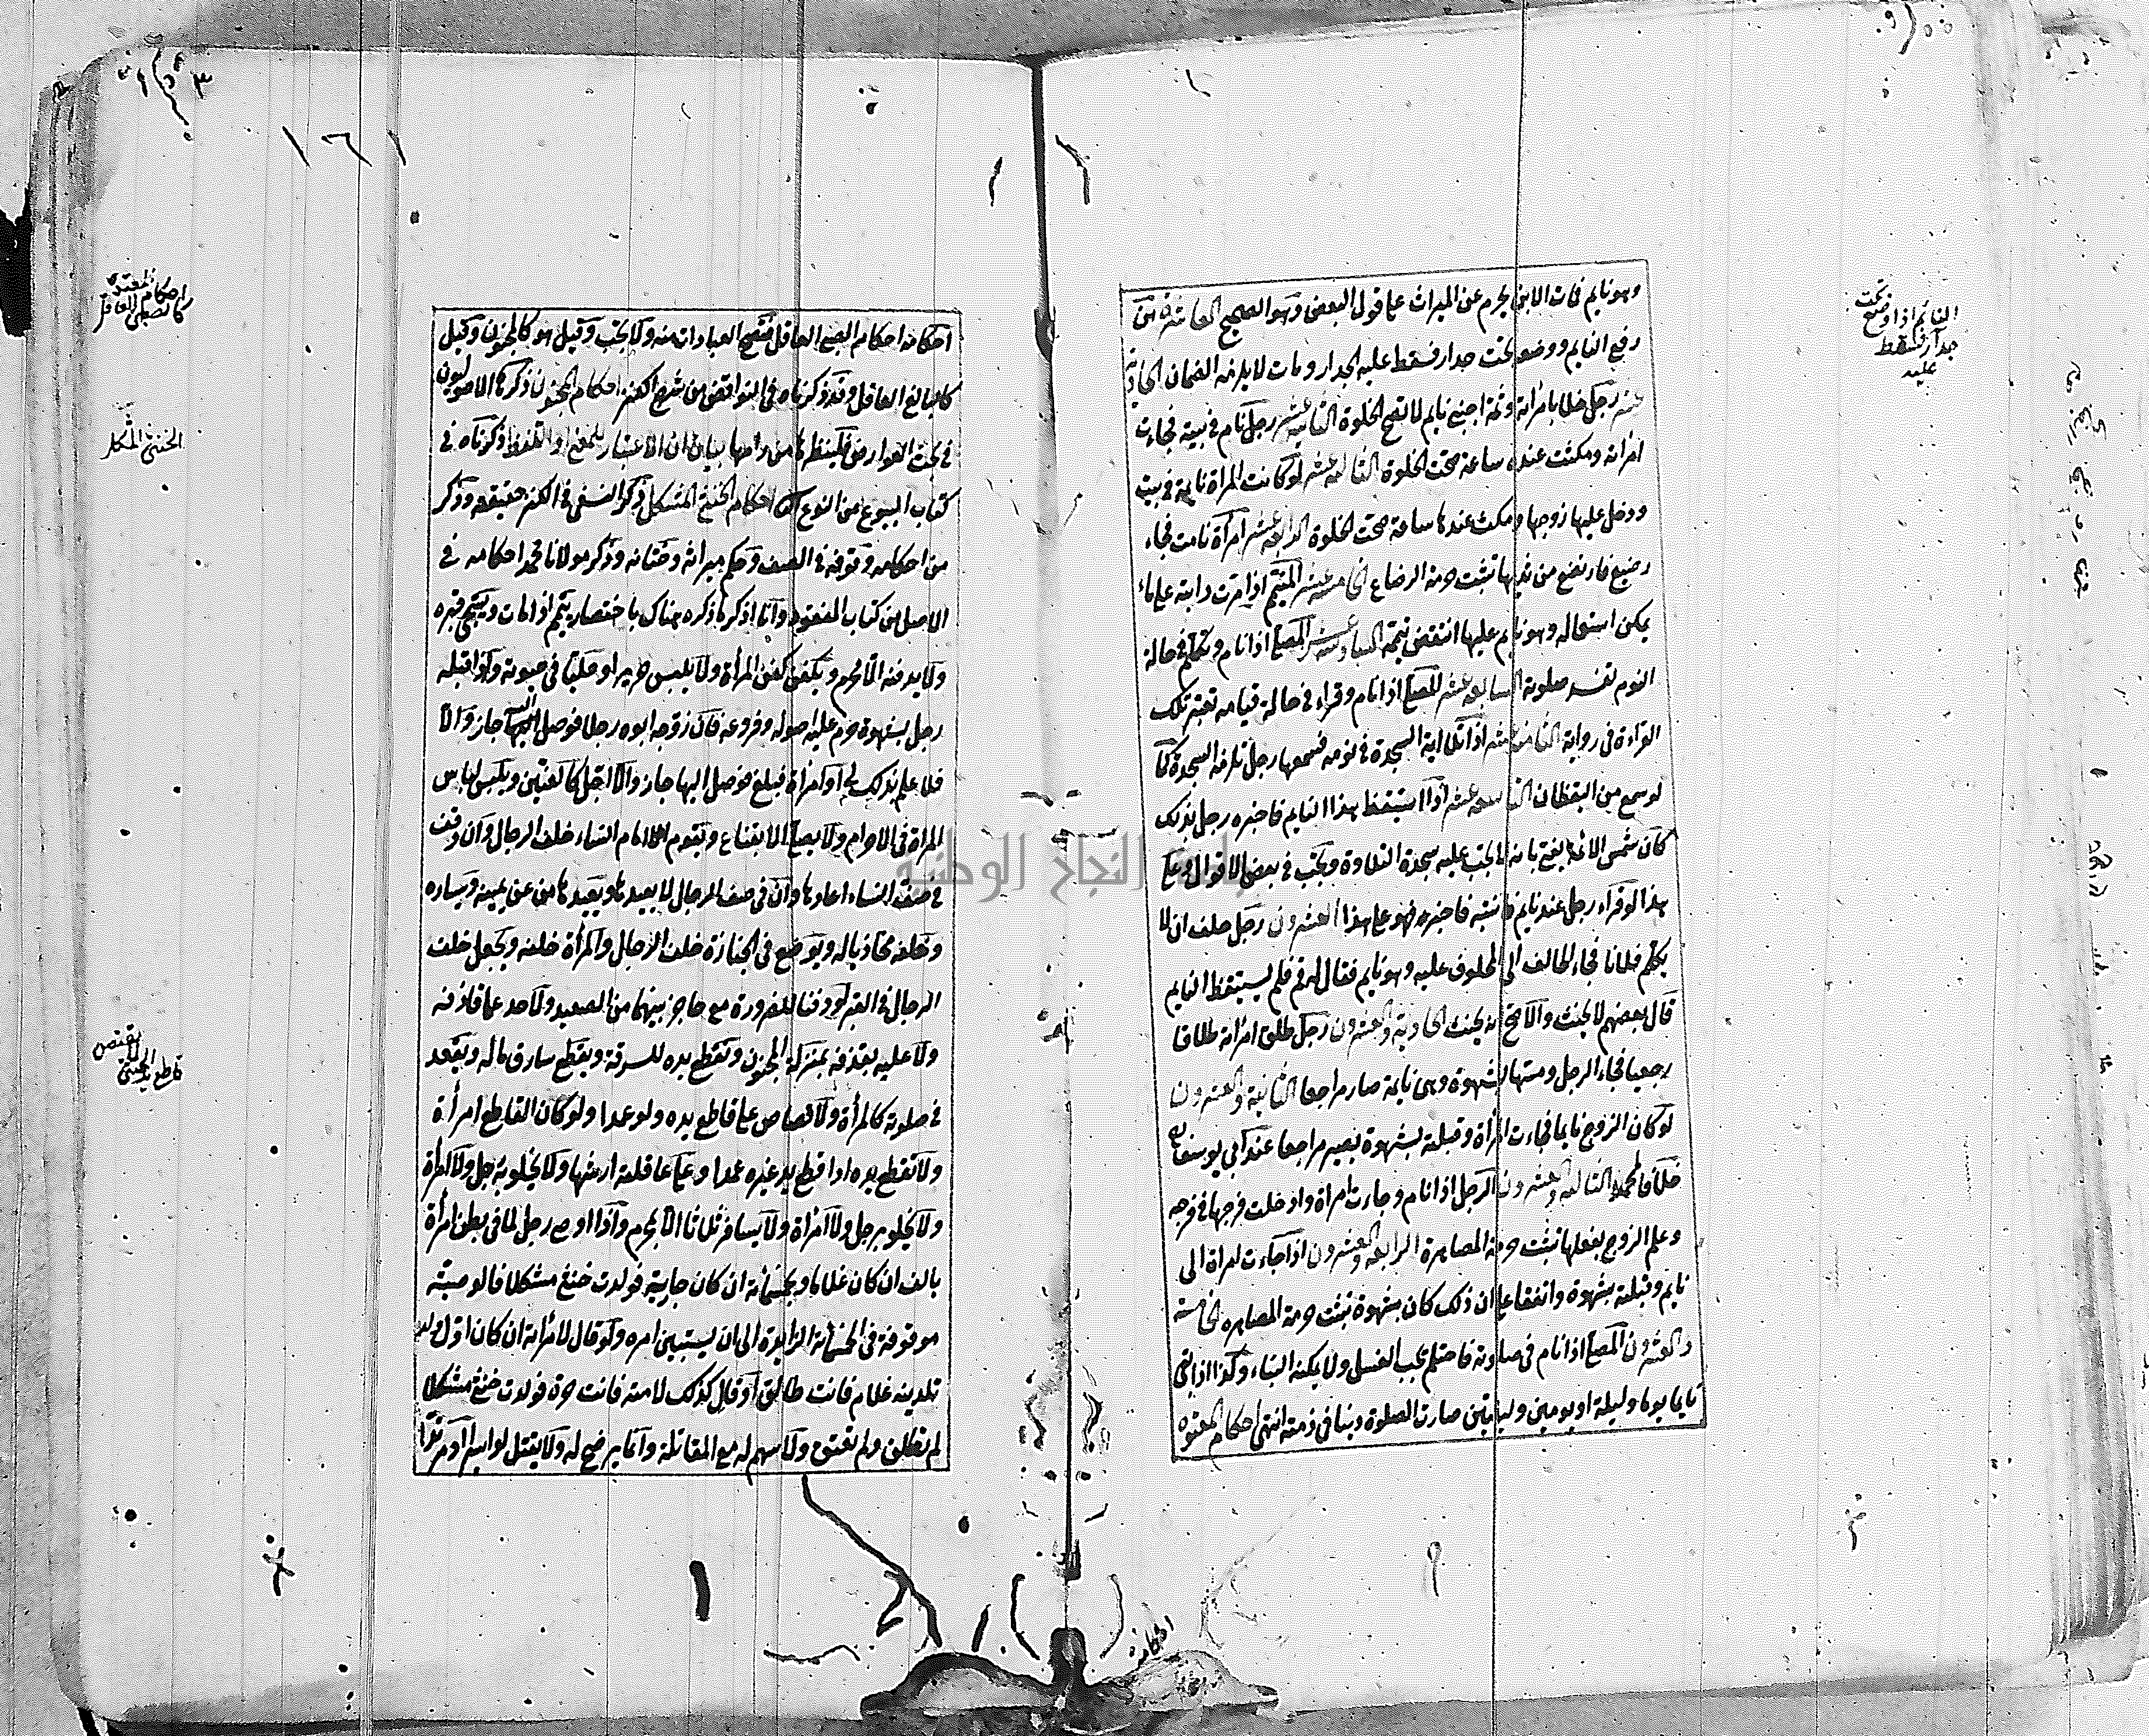 وهو نايم فمات الابن يحرم عن الميراث على قول البعض وهو الصحيح العاشرة من
رفع النايم ووضعه تحت جدار فسقط عليه الجدار ومات لا يلزمه الضمان الحادية
عشر رجل خلا بامرأة وثمة اجنبي نايم لا تصح الخلوة الثانية عشر رجل نام في بيته فجاءت
امرأته ومكثت عنده ساعة صحت الخلوة الثالثة عشر لو كانت المرأة نايمة في بيت
ودخل عليها زوجها ومكث عندها ساعة صحت الخلوة الرابعة عشر امرأة نامت فجاء
رضيع فارتضع من ثديها تثبت حرمة الرضاع الخامسة عشر المتيمم اذا مرت دابته على ماء
يمكن استعماله وهو نايم عليها انتقض تيممه السادسة عشر المصلي اذا نام وتكلم في حالة
النوم تفسد صلوته السابعة عشر المصلي اذا نام وقراء في حالة قيامه تعتبر تلك
القراءة في رواية الثامنة عشر اذا تلا اية السجدة في نومه فسمعها رجل تلزمه السجدة كما
لو سمع من اليقظان التاسعة عشر اذا استيقظ هذا النايم فاخبره رجل بذلك
كان شمس الائمة يفتي بانه لا يجب عليه سجدة التلاوة ويجب في بعض الاقوال وعلى
هذا لو قراء رجل عند نايم فانتبه فاخبره فهو على هذا العشرون رجل حلف ان لا
يكلم فلانا فجاء الحالف الى المحلوف عليه وهو نايم فقال له قم فلم يستيقظ النايم
قال بعضهم لا يحنث والاصح انه يحنث الحادية والعشرون رجل طلق امرأته طلاقا
رجعيا فجاء الرجل ومسها بشهوة وهي نايمة صار مراجعا الثانية والعشرون
لو كان الزوج نايما فجاءت المرأة وقبلته بشهوة يصير مراجعا عند ابي يوسف
خلافا لمحمد الثالثة والعشرون الرجل اذا نام وجاءت امراة وادخلت فرجها في فرجه
وعلم الزوج بفعلها تثبت حرمة المصاهرة الرابعة والعشرون اذا جاءت امراة الى
نايم وقبلته بشهوة واتفقا على ان ذلك كان بشهوة تثبت حرمة المصاهرة الخامسة
والعشرون المصلي اذا نام في صلوته فاحتلم يجب الغسل ولا يمكنه البناء وكذا اذا بقي
نايما يوما وليلة او يومين وليلتين صارت الصلوة دينا في ذمته انتهى احكام المعتوه
النائم اذا وضع تحت
جدار فسقط
عليه
١٦١
احكامه احكام الصبي العاقل فتصح العبادات منه ولا تجب وقيل هو كالمجنون وقيل
كالبالغ العاقل وقد ذكرناه في النواقض من شرح الكنز احكام المجنون ذكرها الاصوليون
في بحث العوارض فلينظرها من رامها بيان ان الاعتبار للمعنى او للفظ ذكرناه في
كتاب البيوع من النوع احكام الخنثى المشكل ذكر النسفي في الكنز حقيقته وذكر
من احكامه وقوفه في الصف وحكم ميراثه وختانه وذكر مولانا محمد احكامه في
الاصل من كتاب المفقود وانا اذكر ما ذكره هناك باختصار ييمم اذا مات ويسجى قبره
ولا يدفنه الا محرم ويكفن كفن المرأة ولا يلبس حريرا وحليا في حيوته واذا قبله
رجل بشهوة حرم عليه اصوله وفروعه فان زوجه ابوه رجلا فوصل اليها جاز والا
فلا علم بذلك او امرأة فبلغ فوصل اليها جاز والا اجل كالعنين ويلبس لباس
المرأة في الاحرام ولا يصلي الا بقناع ويقوم امام النساء خلف الرجال وان وقف
في صف النساء اعادها وان في صف الرجال لا يعيدها ويعيدها من عن يمينه ويساره
وخلفه محاذيا له ويوضع في الجنازة خلف الرجال والمرأة خلفه ويجعل خلف
الرجال في القبر لو دفنا للضرورة مع حاجز بينهما من الصعيد ولا حد على قاذفه
ولا عليه بقذفه بمنزلة المجنون وتقطع يده للسرقة ويقطع سارق ماله ويقعد
في صلوته كالمرأة ولا قصاص على قاطع يده ولو عمدا ولو كان القاطع امرأة
ولا تقطع يده اذا قطع يد غيره عمدا وعلى عاقلته ارشها ولا يخلو به رجل ولا امرأة
ولا يخلو برجل ولا امرأة ولا يسافر ثلاثا الا بمحرم واذا اوصى رجل لما في بطن امرأة
بالف ان كان غلاما وبخمسمائة ان كان جارية فولدت خنثى مشكلا فالوصية
موقوفة في الخمسمائة الزايدة الى ان يستبين امره ولو قال لامرأته ان كان اول ولد
تلدينه غلام فانت طالق او قال كذلك لامته فانت حرة فولدت خنثى مشكلا
لم تطلق ولم تعتق ولا سهم له مع المقاتلة وانما يرضخ له ولا يقتل لو اسر او مرتدا
احكام المعتوه
كالصبي العاقل
الخنثى المشكل
يقتص
قاطع يد الخنثى
جامعة النجاح الوطنية
احكامه